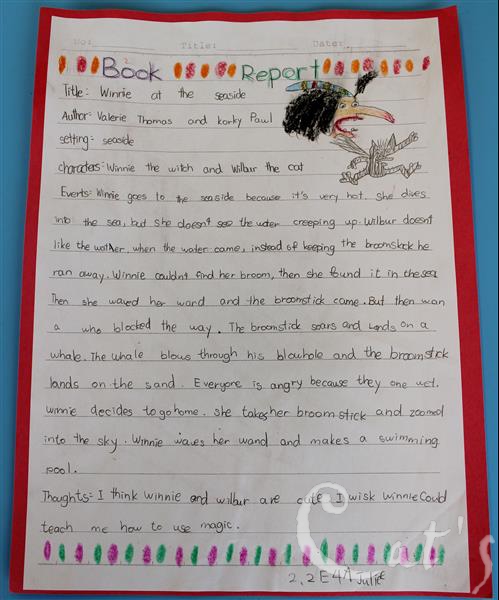 No: Title: Date:
Book Report
Title: Winnie at the seaside
Author: Valerie Thomas and Korky Paul
setting: seaside
characters: Winnie the witch and Wilbur the cat
Everts: Winnie goes to the seaside because it's very hot. She dives
into the sea, but she doesn't see the water creeping up. Wilbur doesn't
like the wather, when the water came, instead of keeping the broomstick he
ran away. Winnie couldn't find her broom, then she found it in the sea
Then she waved her wand and the broomstick came. But then wan
a who blocked the way. The broomstick soars and lands on a
whale. The whale blows through his blowhole and the broomstick
lands on the sand. Everyone is angry because they one wet.
Winnie decides to go home. she takes her broom stick and zoomed
into the sky. Winnie waves her wand and makes a swimming
pool.
Thoughts: I think winnie and wilbur are cute I wisk Winnie Could
teach me how to use magic.
Cat's
2.2E4A Juliee